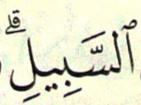 ٱلسَّبِيلِۗ